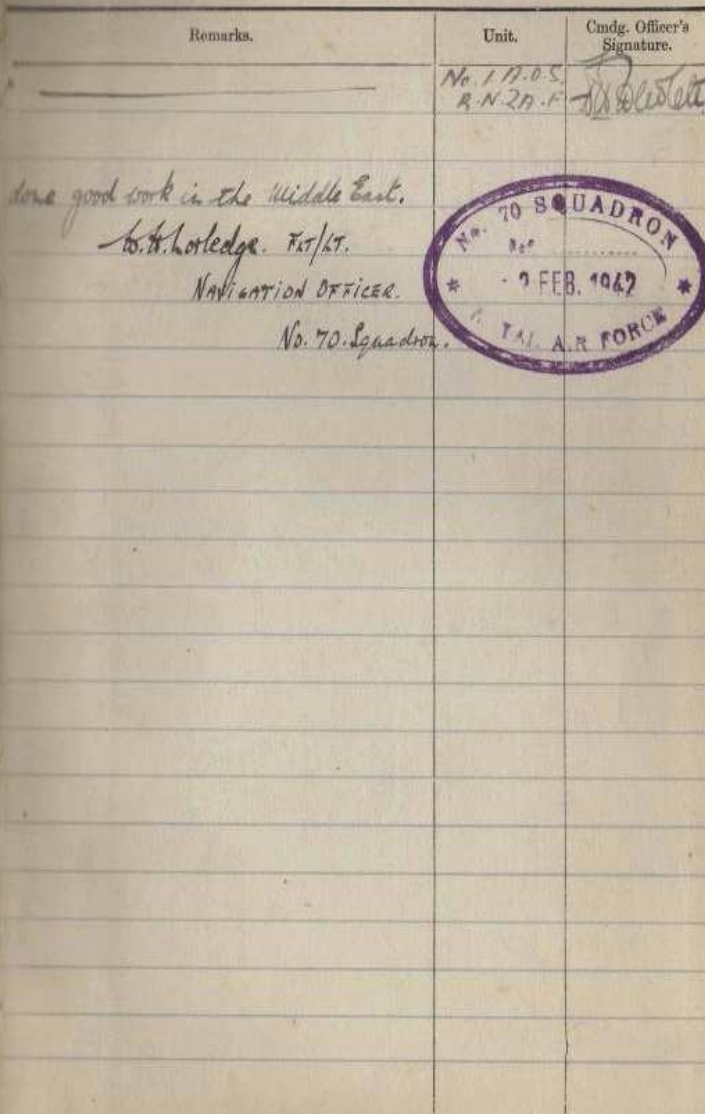 Remarks. Unit. Cmdg. Officer's Signature.
No. 1 A.O.S.
R.N.Z.A.F
done good work in the Middle East.
FLT/LT.
NAVIGATION OFFICER.
No. 70. Squadron.
No. 70 SQUADRON
FEB. 1942
AIR FORCE